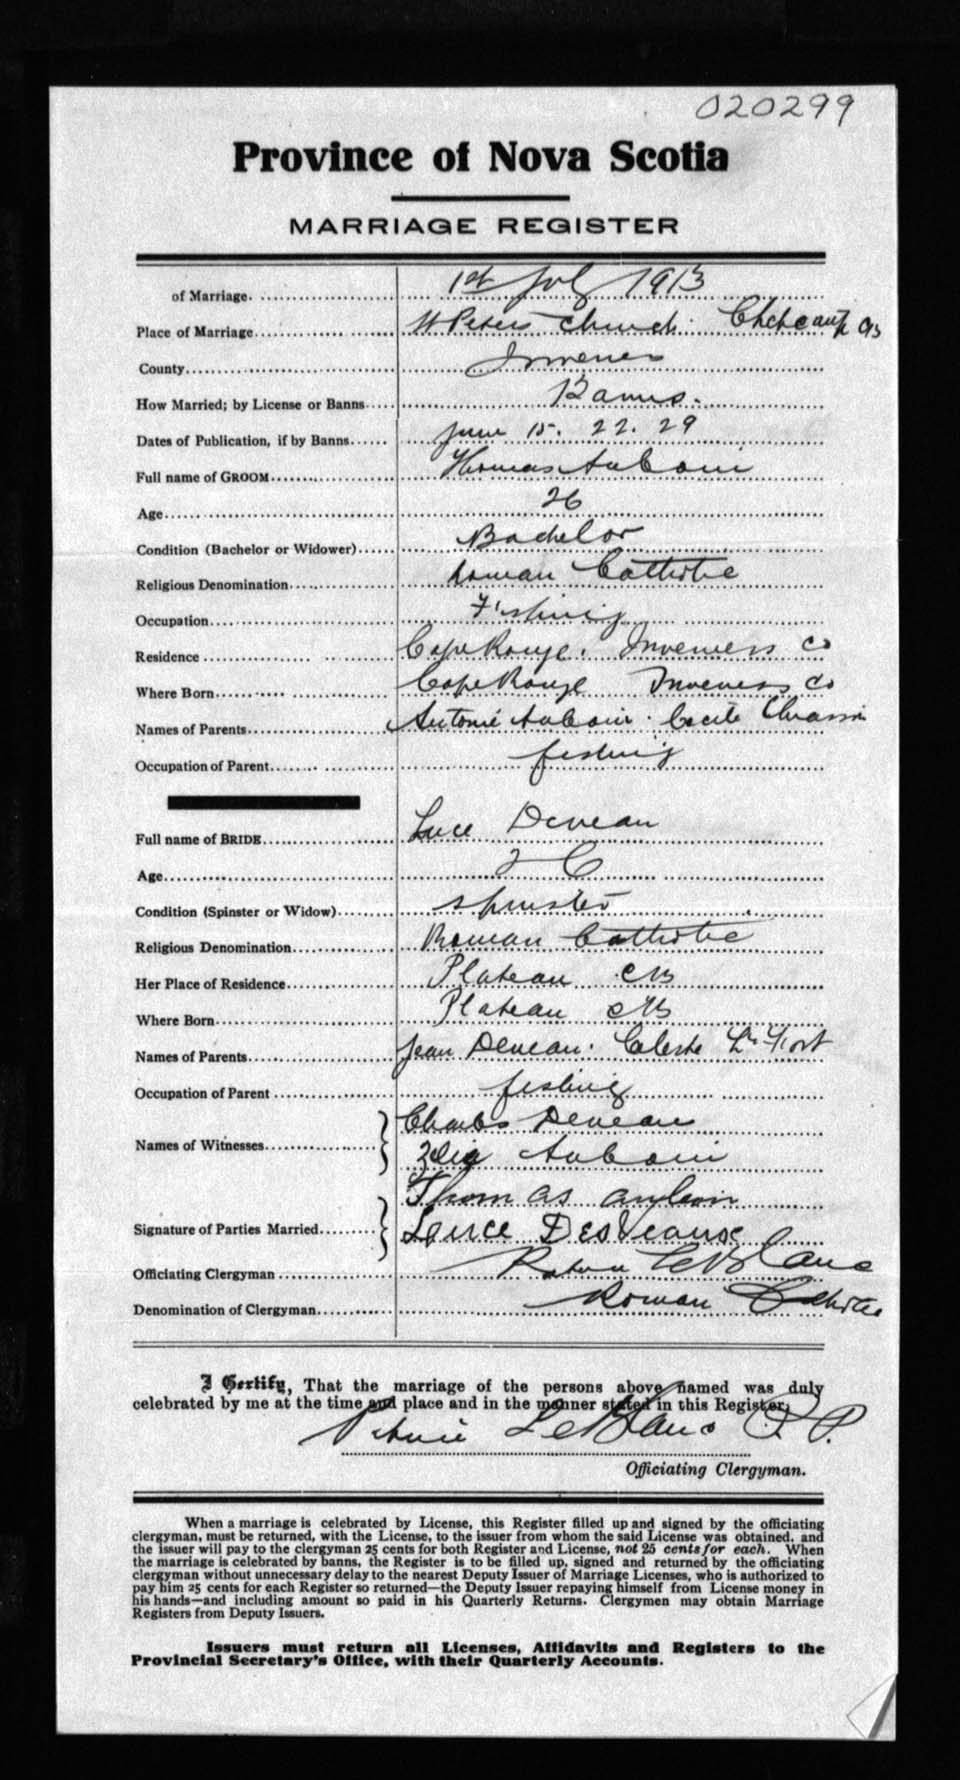 020299
Province of Nova Scotia
MARRIAGE REGISTER
of Marriage. 1st July 1913
Place of Marriage St Peters Church. Cheticamp CB
County Inverness
How Married; by License or Banns Banns.
Dates of Publication, if by Banns June 15. 22. 29
Full name of GROOM Thomas Aucoin
Age 26
Condition (Bachelor or Widower) Bachelor
Religious Denomination Roman Catholic
Occupation Fishing
Residence Cape Rouge. Inverness Co
Where Born Cape Rouge Inverness Co
Names of Parents Antoine Aucoin. Cecile Chiasson
Occupation of Parent fishing
Full name of BRIDE Luce Deveau
Age 26
Condition (Spinster or Widow) Spinster
Religious Denomination Roman Catholic
Her Place of Residence Plateau CB
Where Born Plateau CB
Names of Parents Jean Deveau. Celeste LeFort
Occupation of Parent fishing
Names of Witnesses Charles Deveau
Aucoin
Signature of Parties Married Thomas
Luce DesVeaux
Officiating Clergyman LeBlanc
Denomination of Clergyman Roman Catholic
I Certify, That the marriage of the persons above named was duly
celebrated by me at the time and place and in the manner stated in this Register.
LeBlanc P. P.
Officiating Clergyman.
When a marriage is celebrated by License, this Register filled up and signed by the officiating
clergyman, must be returned, with the License, to the issuer from whom the said License was obtained, and
the issuer will pay to the clergyman 25 cents for both Register and License, not 25 cents for each. When
the marriage is celebrated by banns, the Register is to be filled up, signed and returned by the officiating
clergyman without unnecessary delay to the nearest Deputy Issuer of Marriage Licenses, who is authorized to
pay him 25 cents for each Register so returned—the Deputy Issuer repaying himself from License money in
his hands—and including amount so paid in his Quarterly Returns. Clergymen may obtain Marriage
Registers from Deputy Issuers.
Issuers must return all Licenses, Affidavits and Registers to the
Provincial Secretary's Office, with their Quarterly Accounts.